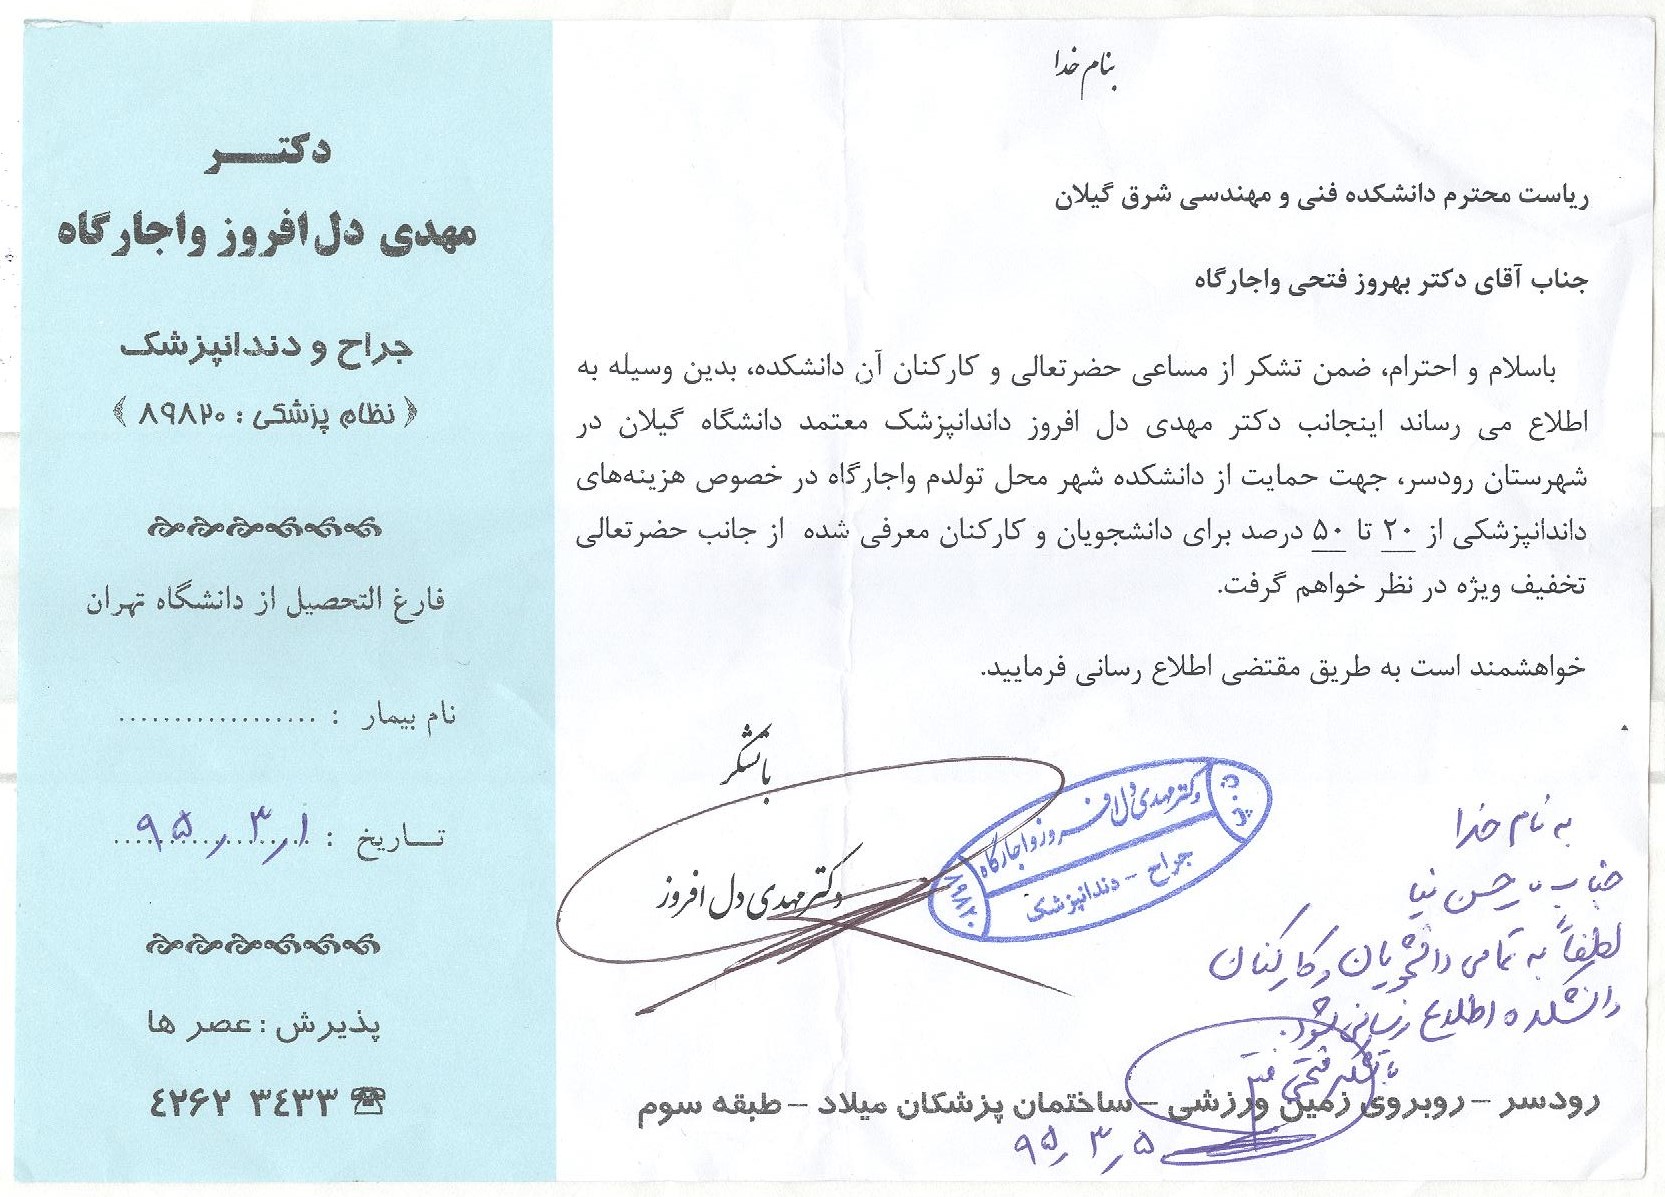 بنام خدا
ریاست محترم دانشکده فنی و مهندسی شرق گیلان
جناب آقای دکتر بهروز فتحی واجارگاه
باسلام و احترام، ضمن تشکر از مساعی حضرتعالی و کارکنان آن دانشکده، بدین وسیله به
اطلاع می رساند اینجانب دکتر مهدی دل افروز داندانپزشک معتمد دانشگاه گیلان در
شهرستان رودسر، جهت حمایت از دانشکده شهر محل تولدم واجارگاه در خصوص هزینه‌های
داندانپزشکی از ۲۰ تا ۵۰ درصد برای دانشجویان و کارکنان معرفی شده از جانب حضرتعالی
تخفیف ویژه در نظر خواهم گرفت.
خواهشمند است به طریق مقتضی اطلاع رسانی فرمایید.
باتشکر
دکتر مهدی دل افروز
دکتر مهدی دل افروز واجارگاه
جراح - دندانپزشک
۸۹۸۲۰
به نام خدا
جناب حسن نیا
لطفاً به تمامی دانشجویان و کارکنان
دانشکده اطلاع رسانی شود.
با تشکر فتحی
۹۵/۳/۵
رودسر – روبروی زمین ورزشی – ساختمان پزشکان میلاد – طبقه سوم
دکتـــر
مهدی دل افروز واجارگاه
جراح و دندانپزشک
﴿ نظام پزشکی : ۸۹۸۲۰ ﴾
فارغ التحصیل از دانشگاه تهران
نام بیمار : ..................
تـاریخ : ۹۵/۳/۱
پذیرش : عصر ها
☎ ۳۴۳۳ ۴۲۶۲